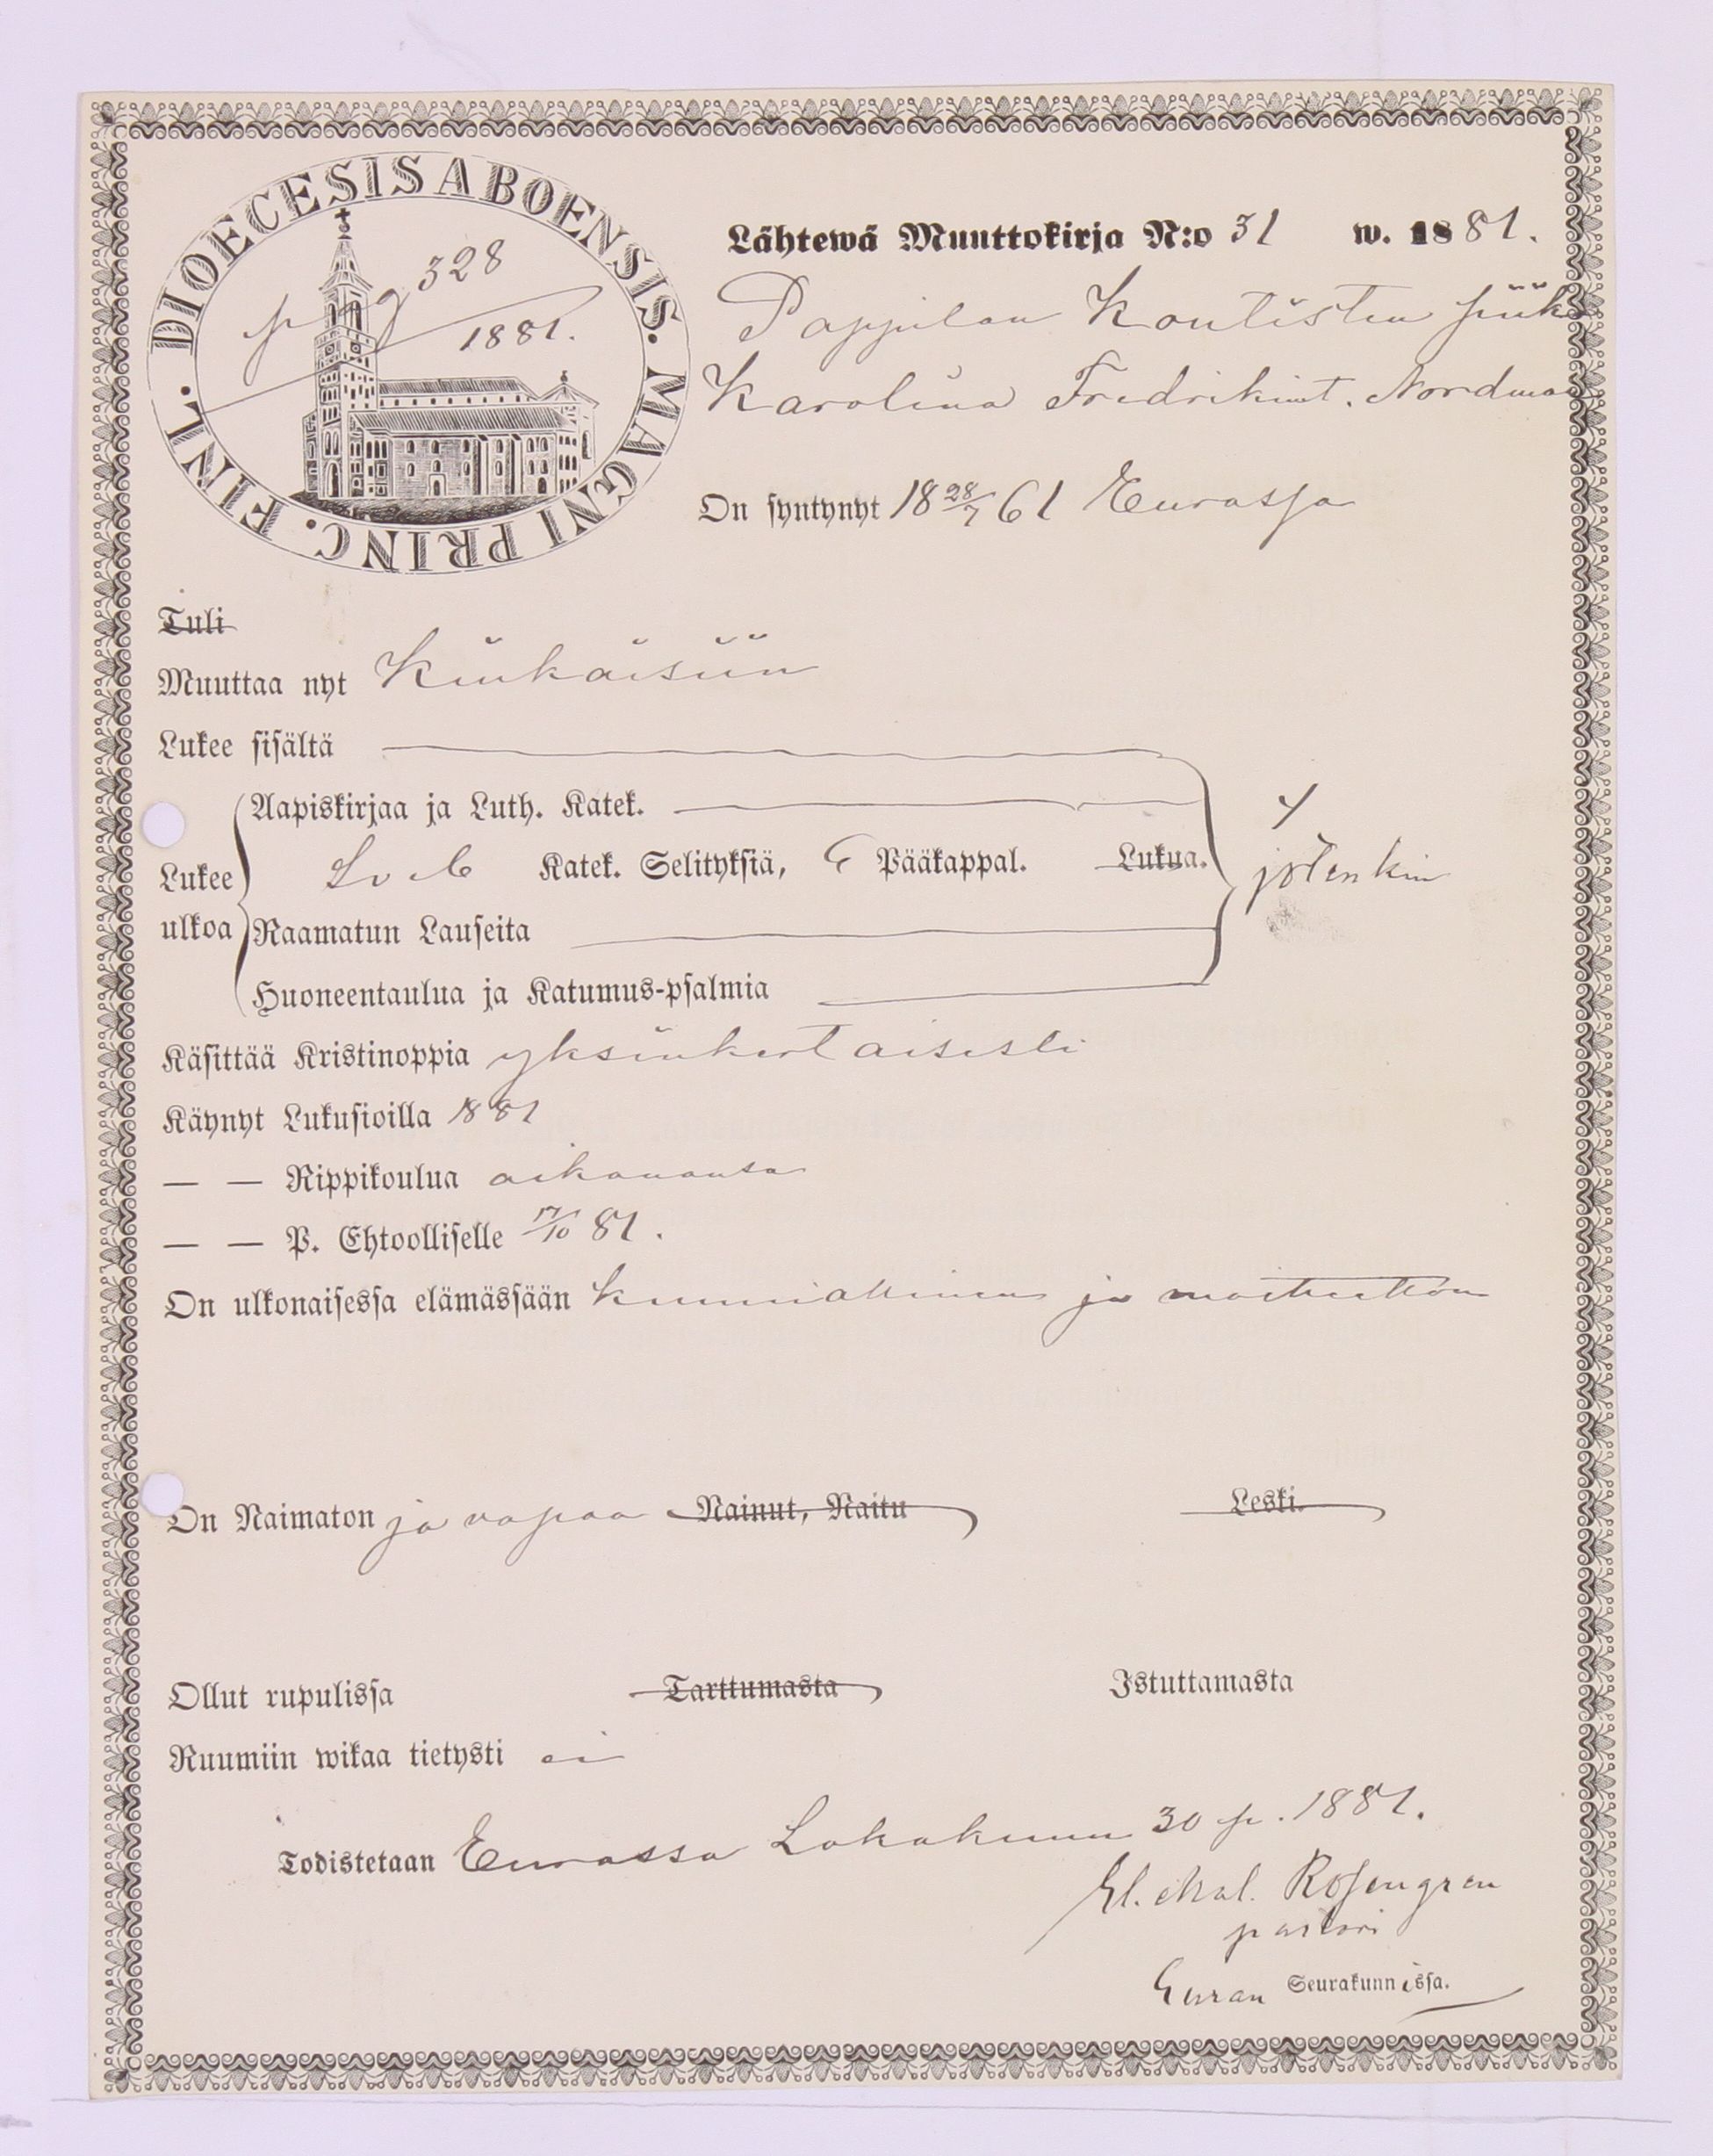 DIOECESIS ABOENSIS. MAGNI PRINC. FINL.
pag 328
1881.
Lähtewä Muuttokirja N:o 31 w. 1881.
Pappilan Kontistin piika
Karolina Fredrikint. Nordman
On syntynyt 18 28/7 61 Eurassa
Tuli
Muuttaa nyt Kiukaisiin
Lukee sisältä
Aapiskirjaa ja Luth. Katek.
Lukee Katek. Selityksiä, Pääkappal. Lukua. jotenkin
ulkoa Raamatun Lauseita
Huoneentaulua ja Katumus-psalmia
Käsittää Kristinoppia yksinkertaisesti
Käynyt Lukusioilla 1881
— — Rippikoulua aikanansa
— — P. Ehtoolliselle 17/10 81.
On ulkonaisessa elämässään kunniallinen ja moitteeton
On Naimaton ja vapaa Nainut, Naitu Leski.
Ollut rupulissa Tarttumasta Istuttamasta
Ruumiin wikaa tietysti ei
Todistetaan Eurassa Lokakuun 30 p. 1881.
Rosengren
pastori
Euran Seurakunnissa.